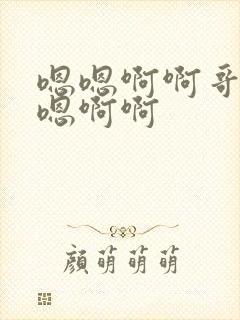 嗯嗯啊啊哥
嗯啊啊
颜萌萌萌